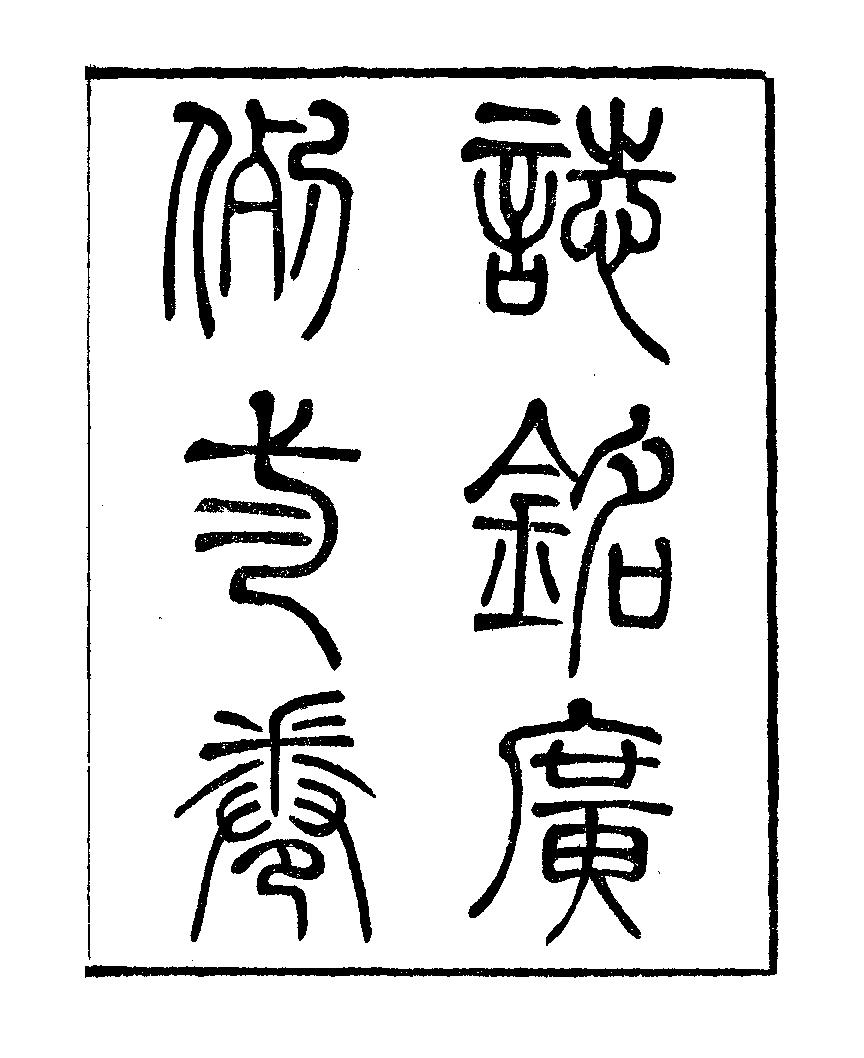 誌銘廣
例弍卷